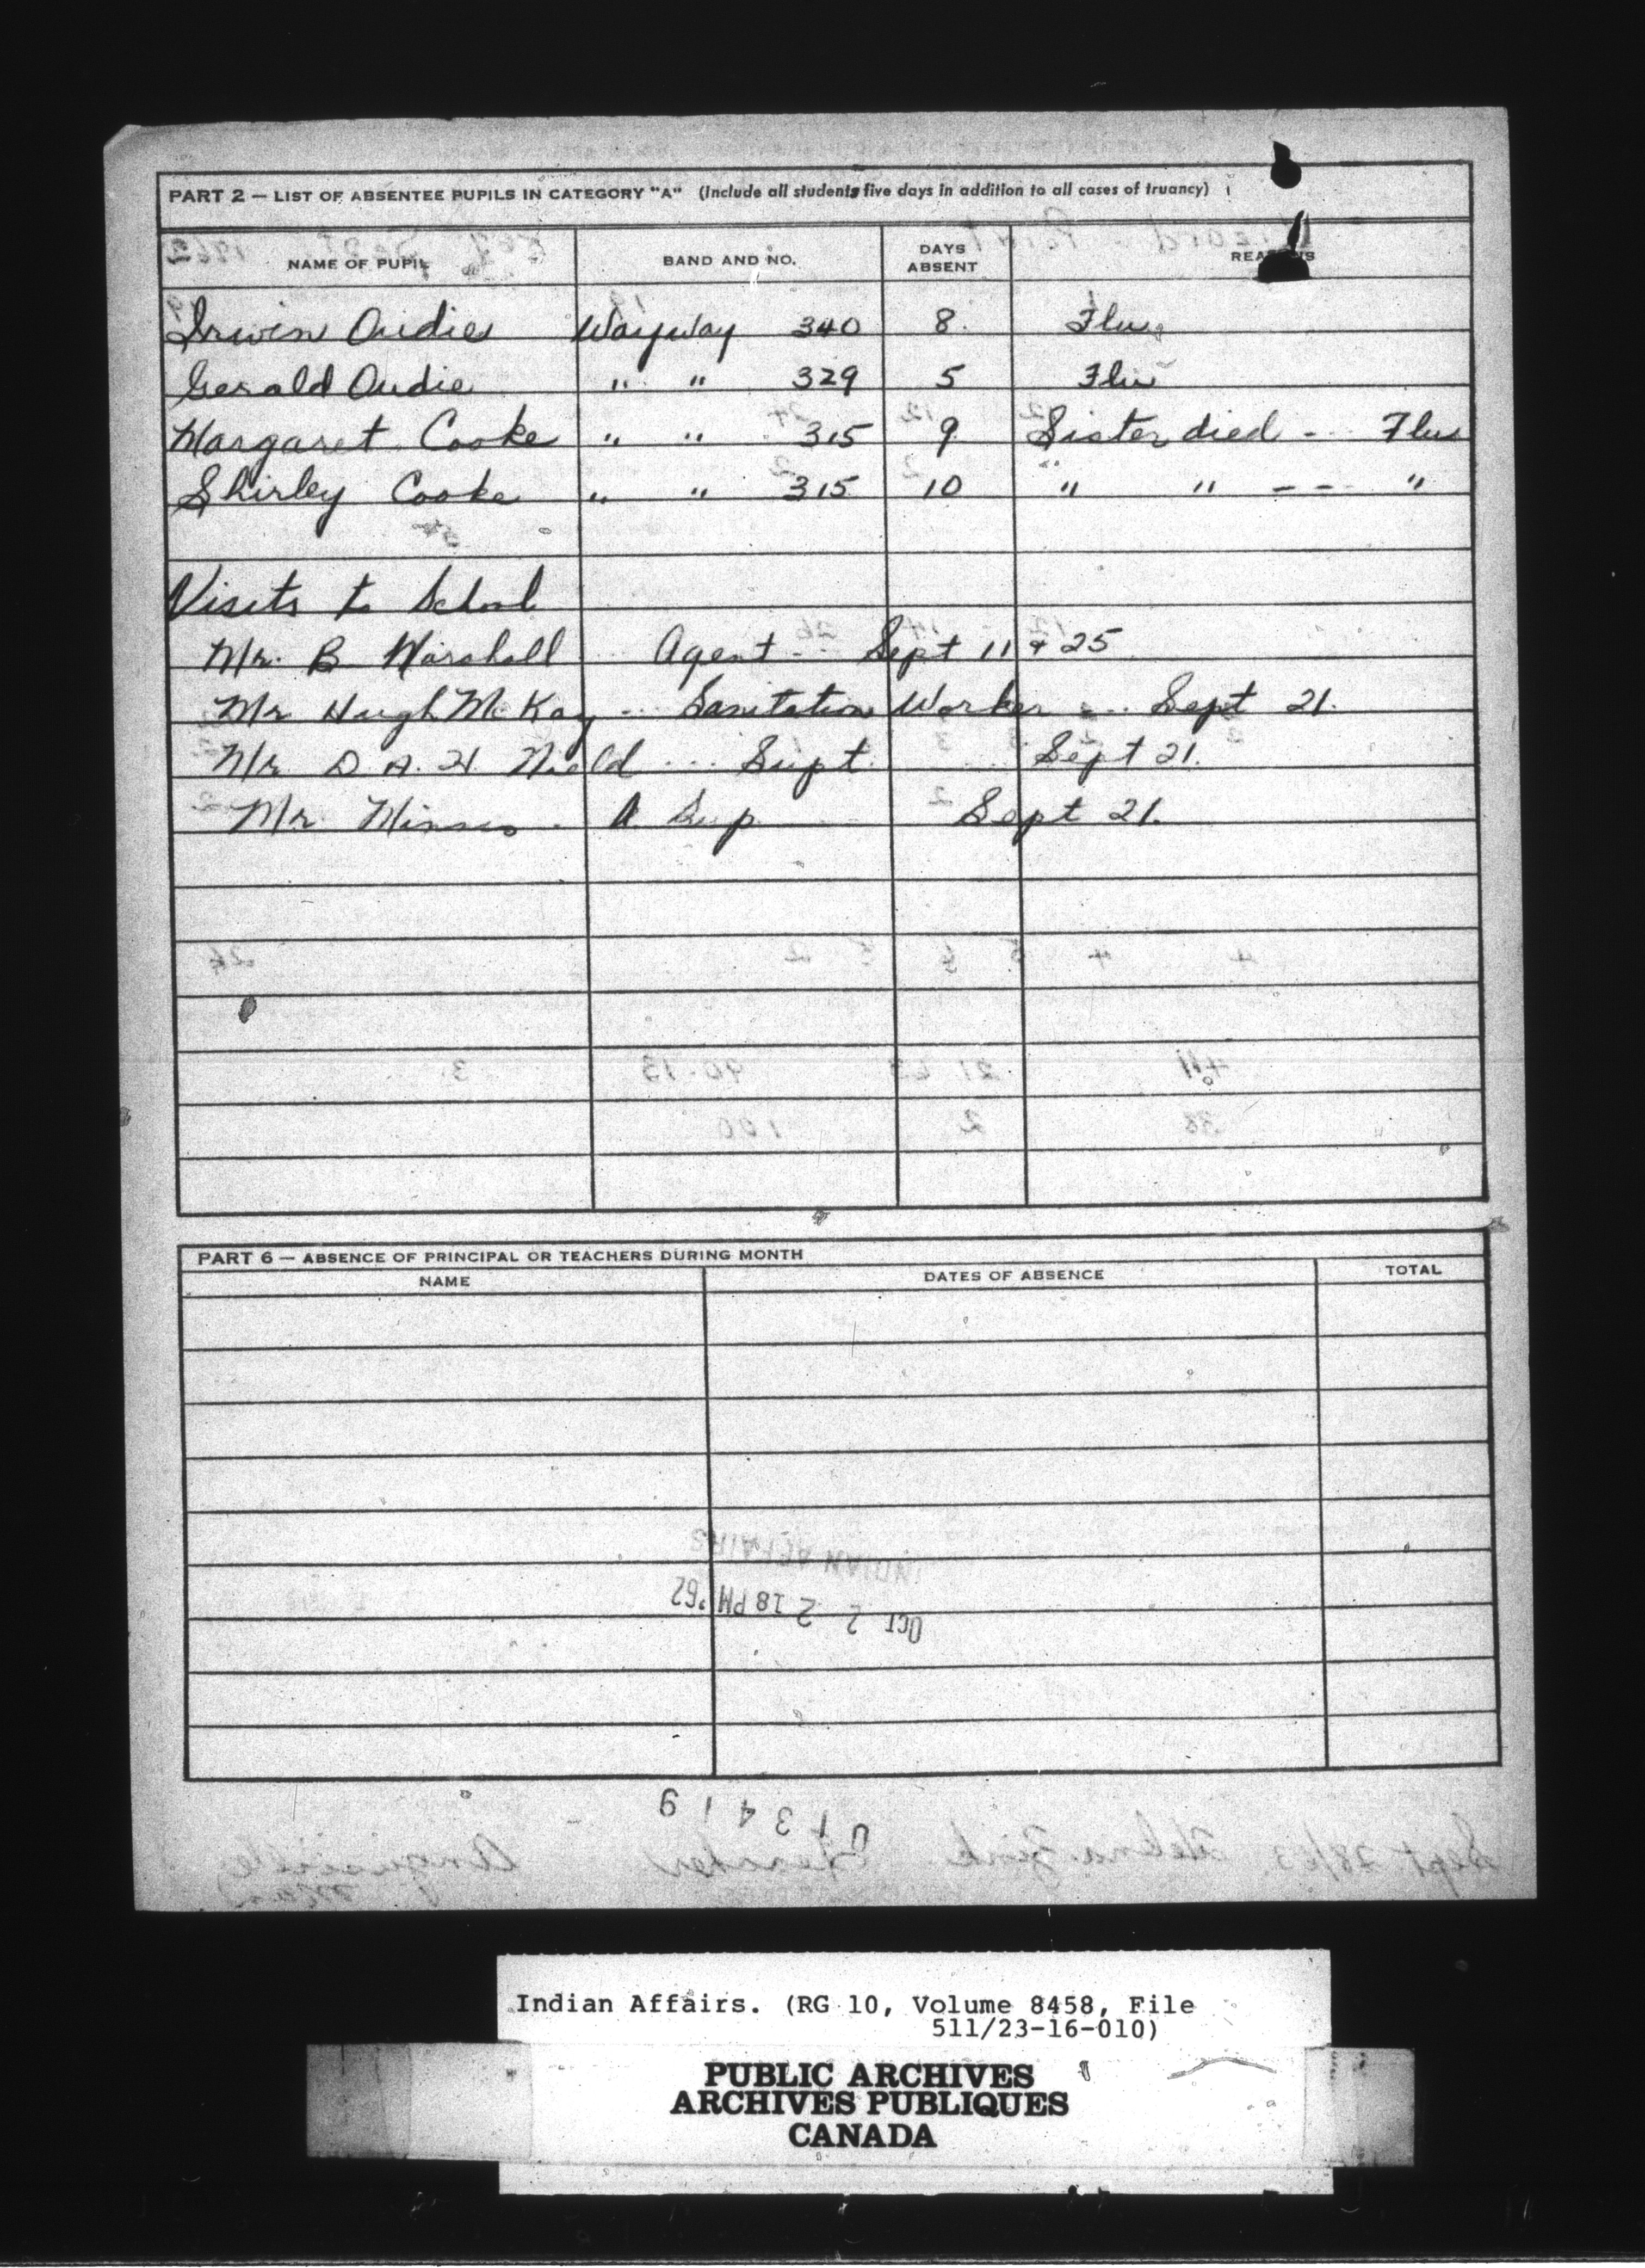 PART 2 — LIST OF ABSENTEE PUPILS IN CATEGORY "A" (Include all students five days in addition to all cases of truancy)
NAME OF PUPIL BAND AND NO. DAYS ABSENT REASONS
Irwin Audie WayWay 340 8 Flu
Gerald Audie " " 329 5 Flu
Margaret Cooke " " 315 9 Sister died - - Flu
Shirley Cooke " " 315 10 " " - - "
Visits to School
Mr. B Marshall Agent - - Sept 11 & 25
Mr Hugh McKay - - Sanitation Worker - - Sept 21.
Mr D. A. H. Nield - - - Supt. Sept 21.
Mr A. Sup Sept 21.
PART 6 — ABSENCE OF PRINCIPAL OR TEACHERS DURING MONTH
NAME DATES OF ABSENCE TOTAL
INDIAN AFFAIRS
OCT 2 2 18 PM '62
013419
Indian Affairs. (RG 10, Volume 8458, File
511/23-16-010)
PUBLIC ARCHIVES
ARCHIVES PUBLIQUES
CANADA